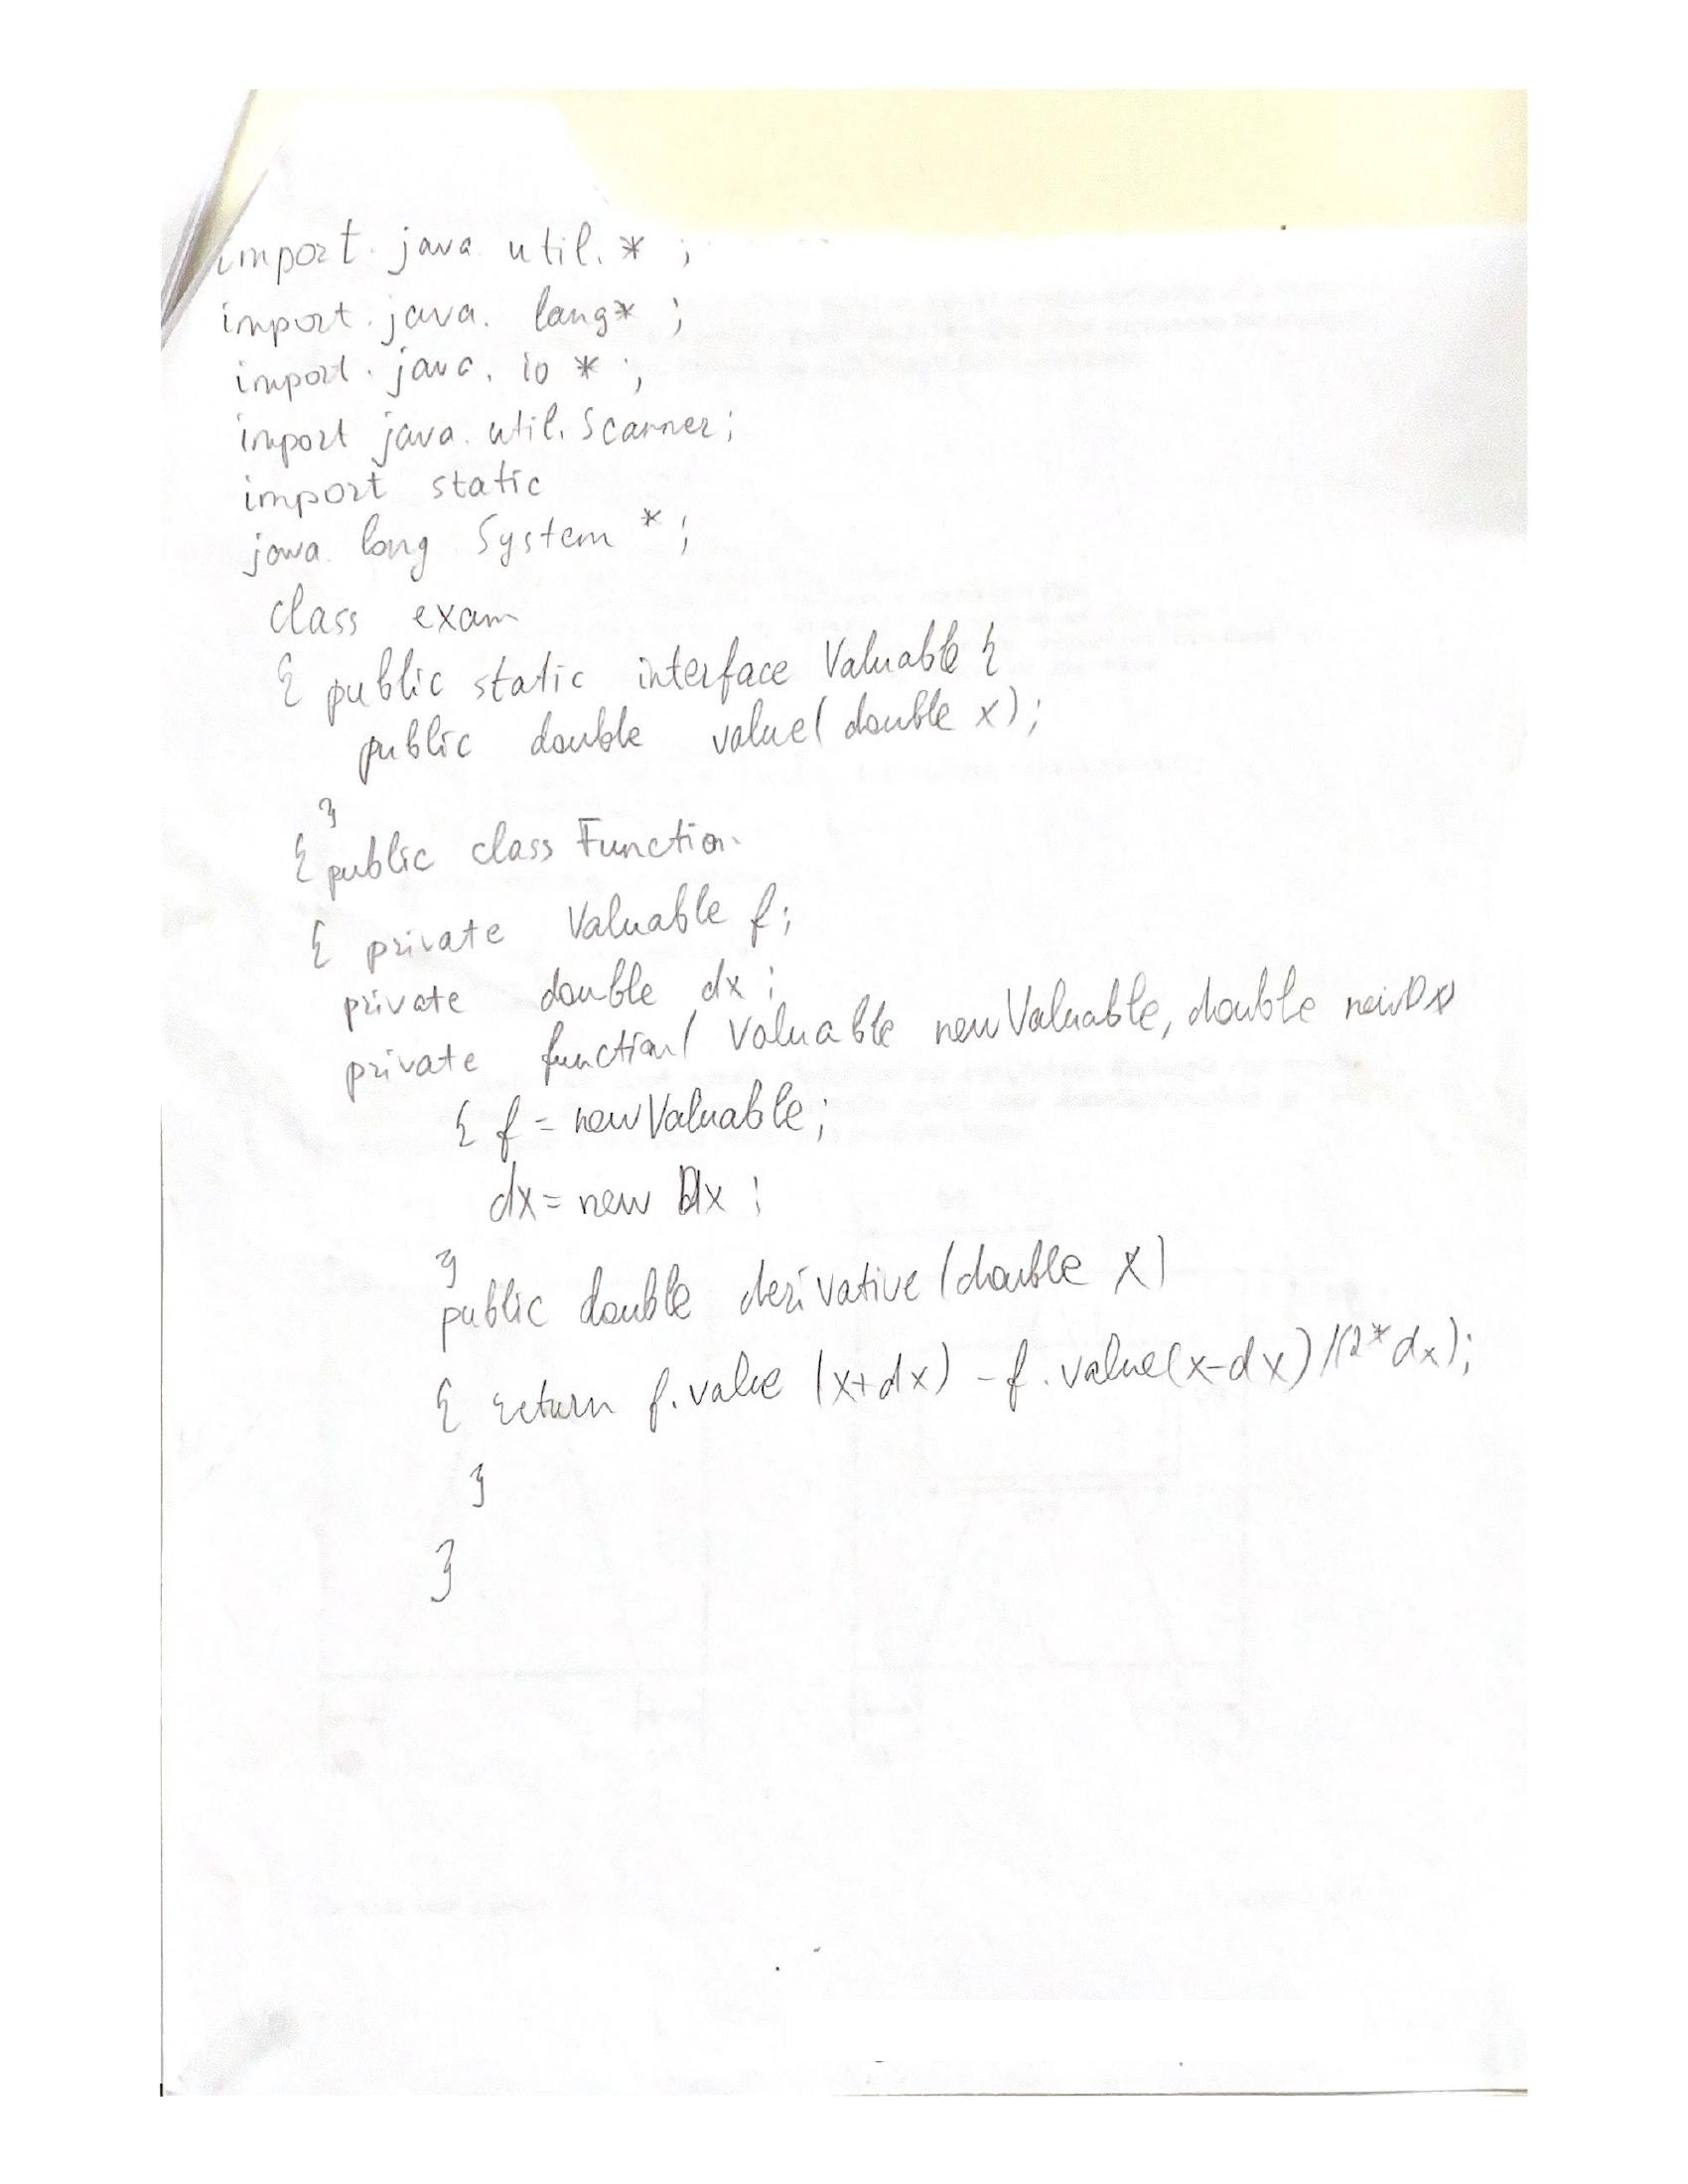 import. java. util. * ;
import. java. lang* ;
import. java. io * ;
import java. util. Scanner;
import static
java. lang System * ;
class exam
{ public static interface Valuable {
public double value( double x);
}
{ public class Function
{ private Valuable f;
private double dx ;
private function( Valuable newValuable, double newDx)
{ f = newValuable;
dx= new Dx ;
}
public double derivative (double x)
{ return f. value (x+dx) - f. value(x-dx) /(2*dx);
}
}